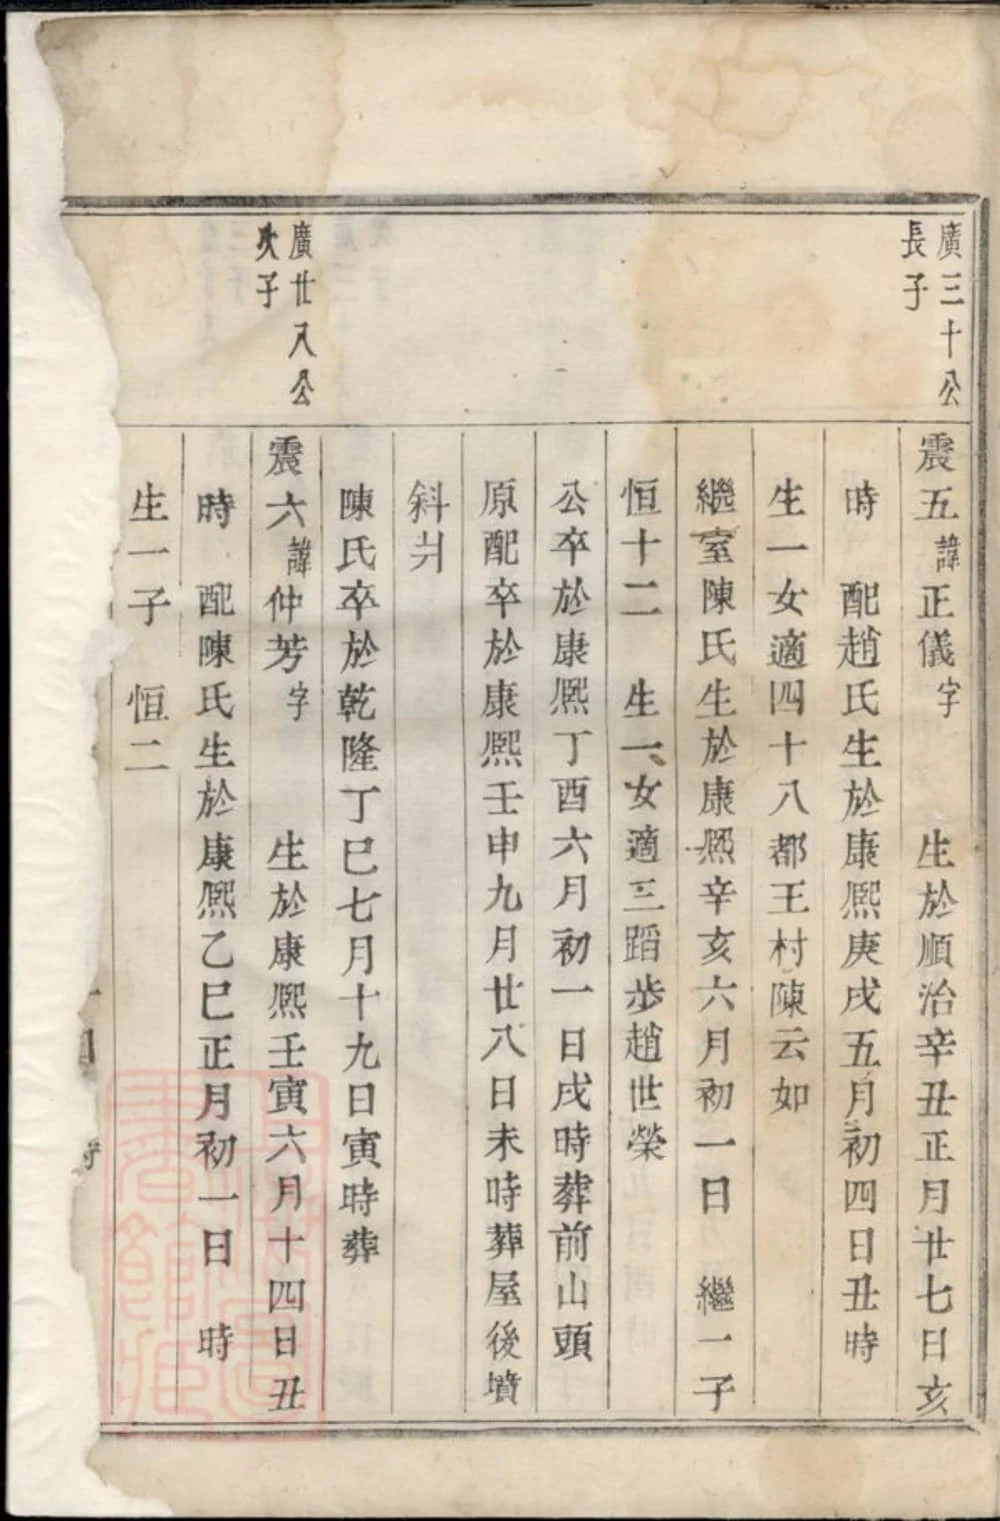 廣三十公
長子
震五諱正儀字 生於順治辛丑正月廿七日亥
時 配趙氏生於康熙庚戌五月初四日丑時
生一女適四十八都王村陳云如
繼室陳氏生於康熙辛亥六月初一日 繼一子
恒十二 生一女適三蹈步趙世榮
公卒於康熙丁酉六月初一日戌時葬前山頭
原配卒於康熙壬申九月廿八日未時葬屋後墳
斜爿
陳氏卒於乾隆丁巳七月十九日寅時葬
廣廿八公
次子
震六諱仲芳字 生於康熙壬寅六月十四日丑
時 配陳氏生於康熙乙巳正月初一日 時
生一子 恒二